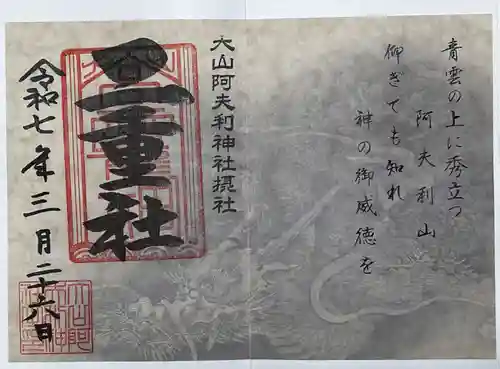 青雲の上に秀立つ
阿夫利山
仰ぎても知れ
神の御威徳を
大山阿夫利神社摂社
二重社
令和七年三月二十六日